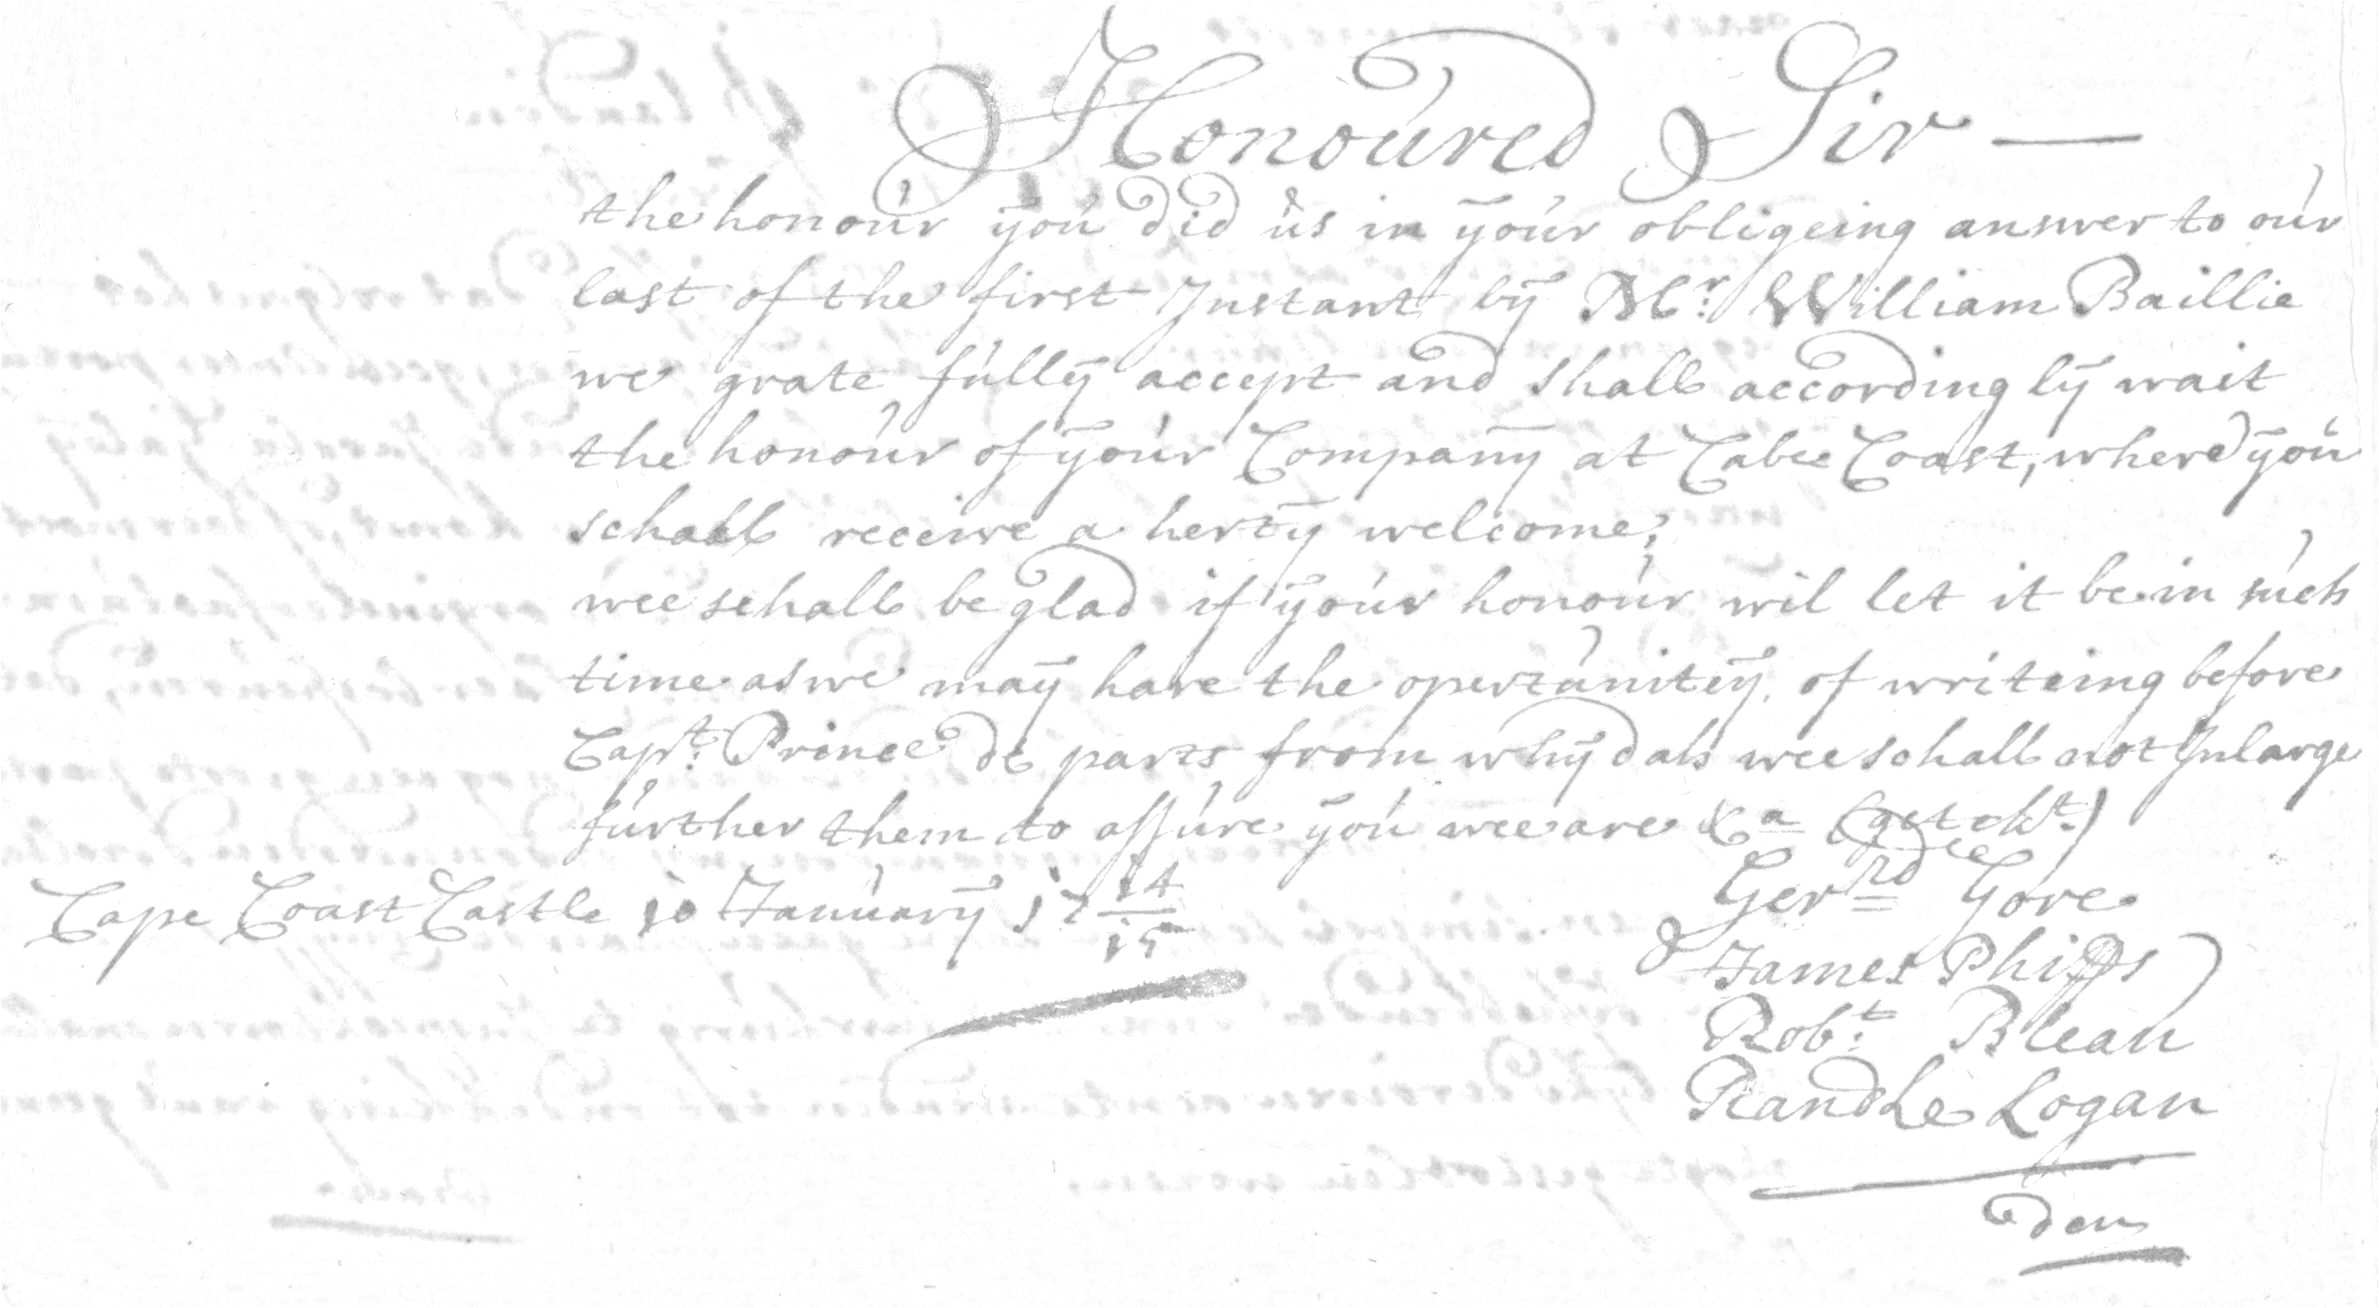 Honoured Sir —
the honour you did us in your obligeing answer to our
last of the first Instant by Mr. William Baillie
we grate fully accept and shall accordingly wait
the honour of your Company at Cabe Coast, where you
schall receive a herty welcome;
wee schall be glad if your honour wil let it be in such
time as we may have the opertunitey of writeing before
Capt. Prince de parts from whydah wee schall not Inlarge
further them to assure you wee are &a (getekt.)
Gerrd Gore
Cape Coast Castle 10 January 17 14/15
& James Phips
Robt. Blean
Randle Logan
den